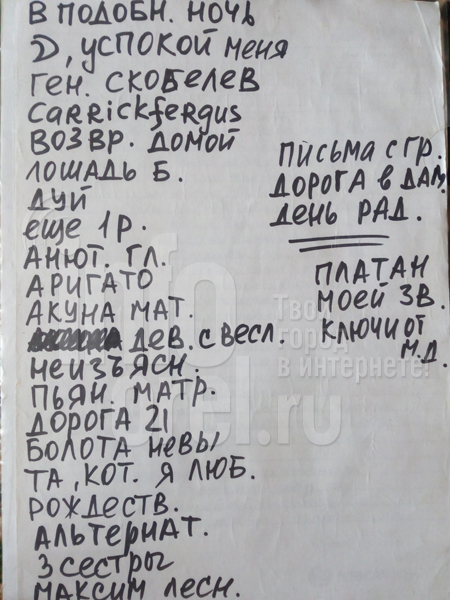 В ПОДОБН. НОЧЬ
Э, УСПОКОЙ меня
ГЕН. СКОБЕЛЕВ
CARRICKfeRgus
ВОЗВР. ДОМОЙ
ЛОШАДЬ Б.
ДУЙ
еще 1 Р.
АНЮТ. ГЛ.
АРИГАТО
АКУНА МАТ.
ДЕВ. С ВЕСЛ.
НЕИЗЪЯСН.
ПЬЯН. МАТР.
ДОРОГА 21
БОЛОТА НЕВЫ
ТА, КОТ. Я ЛЮБ.
РОЖДЕСТВ.
АЛЬТЕРНАТ.
3 СЕСТРЫ
МАКСИМ ЛЕСН.
ПИСЬМА С ГР.
ДОРОГА В ДАМ.
ДЕНЬ РАД.
ПЛАТАН
МОЕЙ ЗВ.
КЛЮЧИ ОТ
М.Д.
Твой
город
в интернете!
info
orel.ru